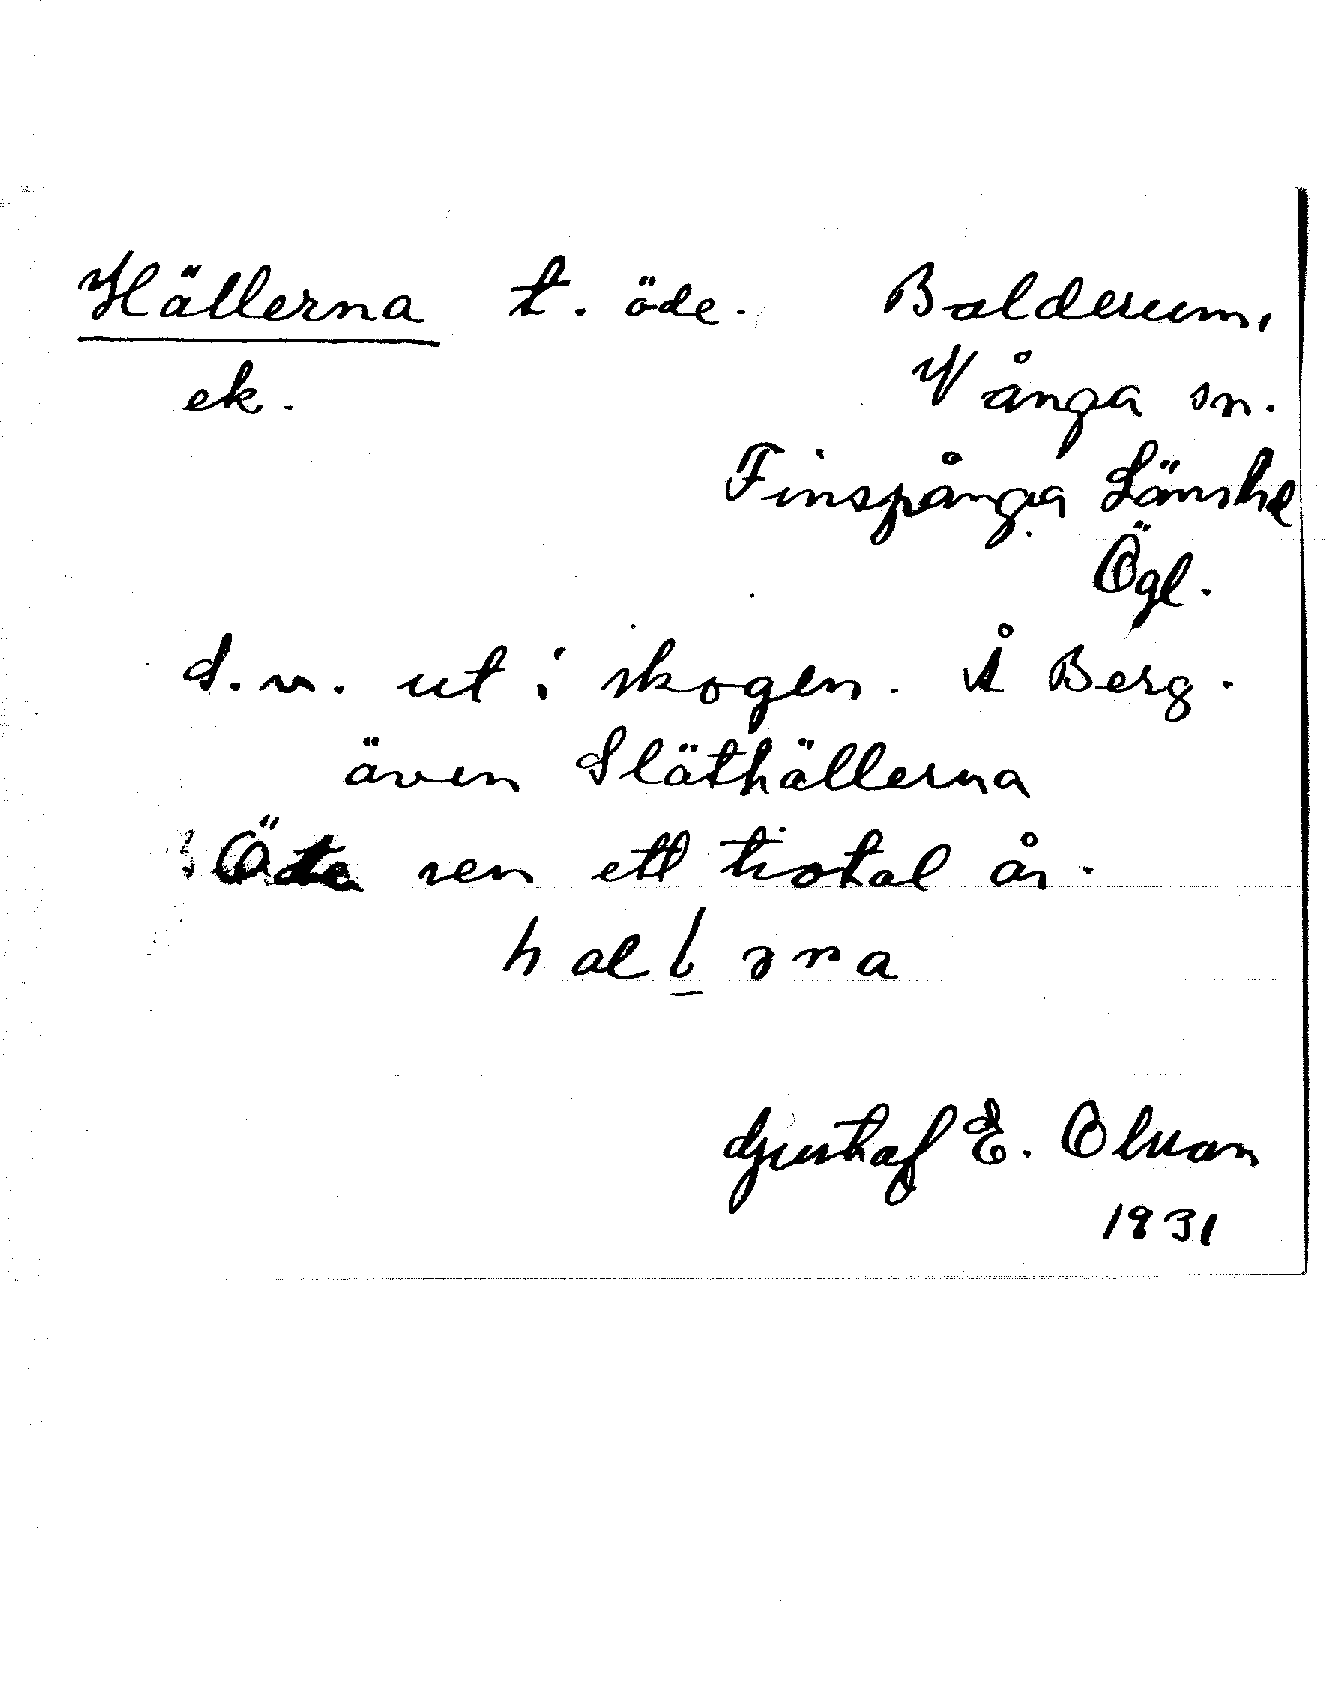 Hällerna t. öde. Balderum,
ek. Vånga sn.
Finspånga Länshd
Ögl.
S.v. ut i skogen. Å Berg.
även Släthällerna
Öde sen ett tiotal år.
Gustaf E. Olsson
1931